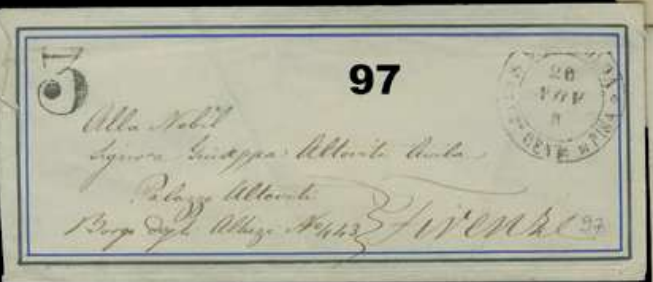 3
97
20
PISA
Alla Nobil
Signora Giuseppa Altoviti Avila
Palazzo Altoviti
Borgo degli Albizi No 443 Firenze
97